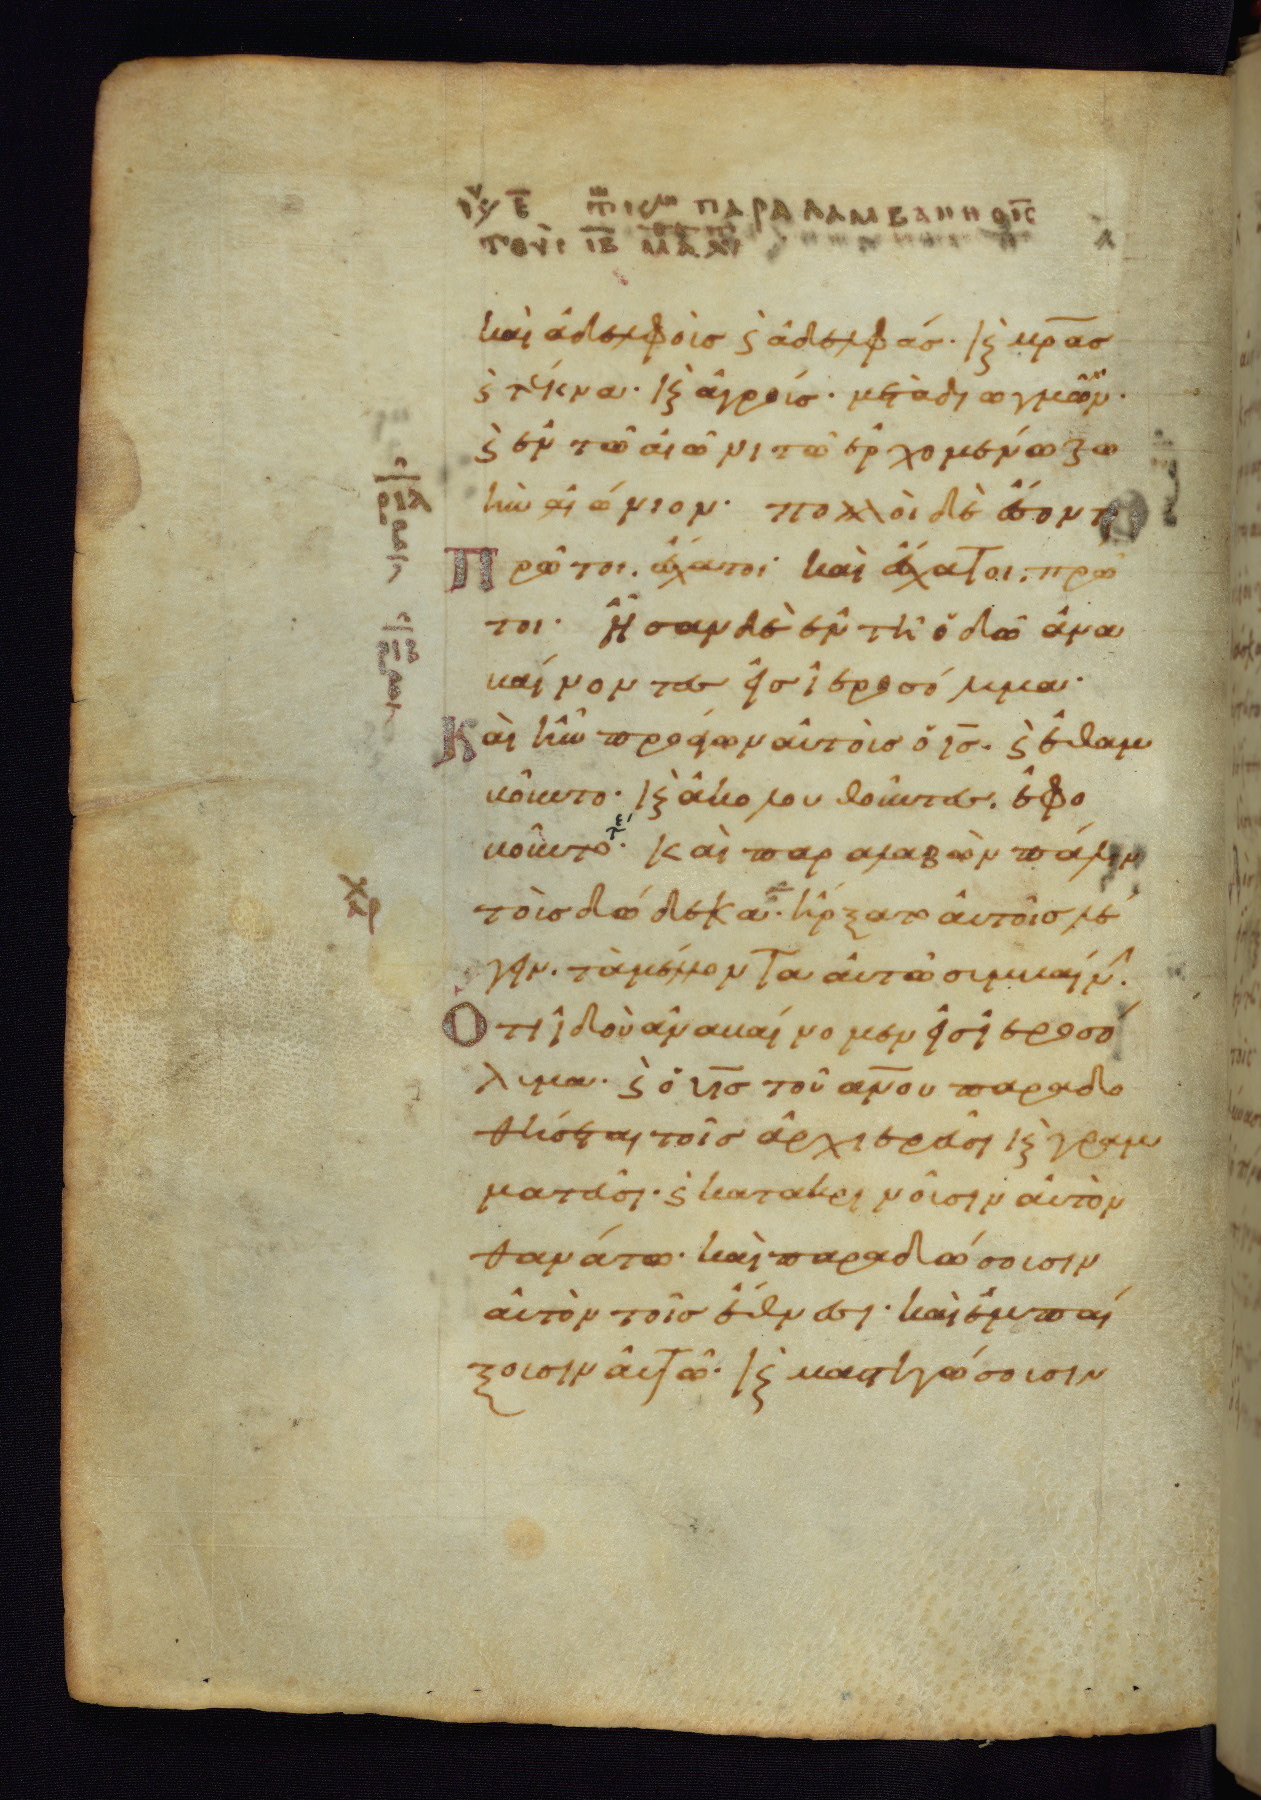 ΠΑΡΑΛΑΜΒΑΝΗ Ο ΙϹ
ΤΟΥϹ ΙΒ ΜΑΘ
καὶ ἀδελφοὺσ ϛ ἀδελφάσ· κϛ μρ̅ασ
ϛ τέκνα· κϛ ἀγρούσ· μετὰ διωγμῶν·
ϛ ἐν τῶ αἰῶνι τῶ ἐρχομένω ζω
ὴν αἰώνιον· πολλοὶ δὲ ἔσονται
Πρῶτοι. ἔσχατοι· καὶ ἔσχατοι. πρῶ
τοι· Ἦσαν δὲ ἐν τῆ ὁδῶ ἀνα
βαίνοντεσ εἰσ ἱεροσόλυμα·
Καὶ ἦν προάγων αὐτοὺσ ὁ ισ̅· ϛ ἐθαμ
βοῦντο· κϛ ἀκολουθοῦντεσ. ἐφο
βοῦντο· Καὶ παραλαβὼν πάλιν
τοὺσ δώδεκα· ἤρξατο αὐτοῖσ λέ
γειν. τὰ μέλλοντα αὐτῶ συμβαίν·
Οτι ἰδοὺ ἀναβαίνομεν εἰσ ἱεροσό
λυμα· ϛ ὁ υι̅σ τοῦ αν̅ου παραδο
θήσεται τοῖσ ἀρχιερεῦσι κϛ γραμ
ματεῦσι· ϛ κατακρινοῦσιν αὐτὸν
θανάτω· καὶ παραδώσουσιν
αὐτὸν τοῖσ ἔθνεσι· καὶ ἐμπαί
ξουσιν αὐτῶ· κϛ μαστιγώσουσιν